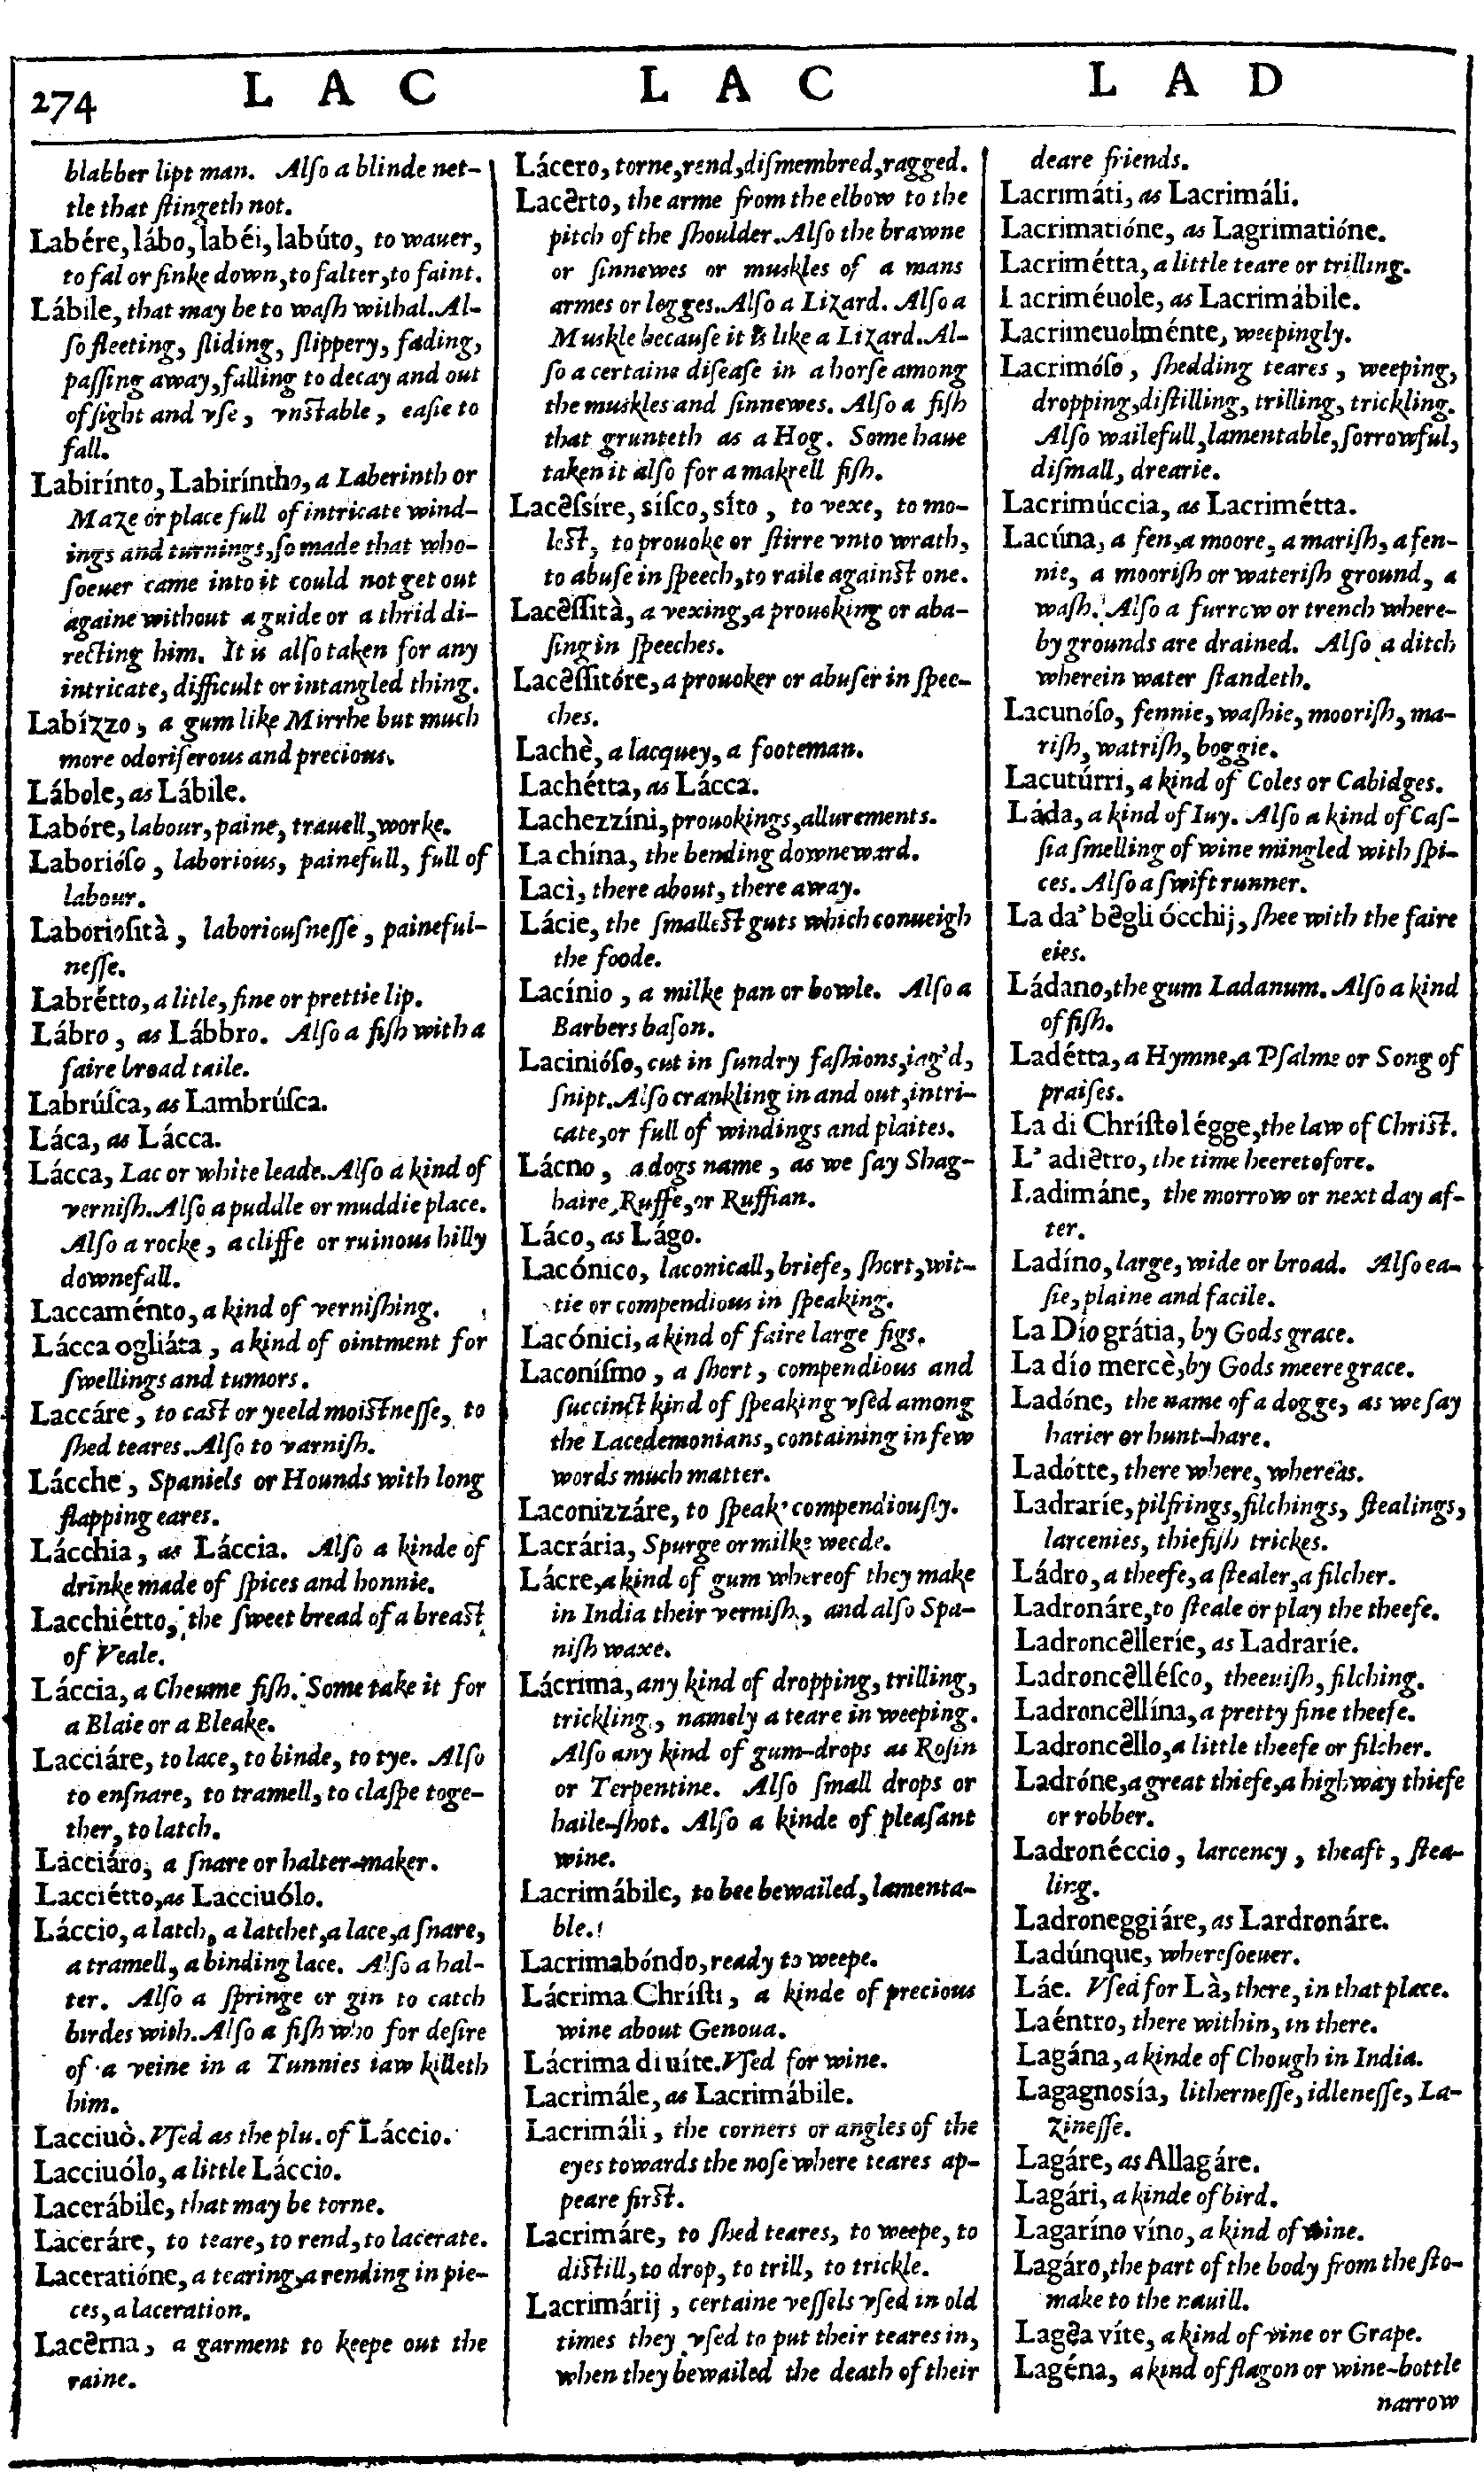 274
L A C
L A C
L A D
blabber lipt man. Alſo a blinde net-
tle that ſtingeth not.
Labére, lábo, labéi, labúto, to wauer,
to fal or ſinke down, to falter, to faint.
Lábile, that may be to waſh withal. Al-
ſo fleeting, ſliding, ſlippery, fading,
paſſing away, falling to decay and out
of ſight and vſe, vnſtable, eaſie to
fall.
Labirínto, Labiríntho, a Laberinth or
Maze or place full of intricate wind-
ings and turnings, ſo made that who-
ſoeuer came into it could not get out
againe without a guide or a thrid di-
recting him. It is alſo taken for any
intricate, difficult or intangled thing.
Labízzo, a gum like Mirrhe but much
more odoriferous and precious.
Lábole, as Lábile.
Labóre, labour, paine, trauell, worke.
Laborióſo, laborious, painefull, full of
labour.
Laborioſità, laboriouſneſſe, paineful-
neſſe.
Labrétto, a litle, fine or prettie lip.
Lábro, as Lábbro. Alſo a fiſh with a
faire broad taile.
Labrúſca, as Lambrúſca.
Láca, as Lácca.
Lácca, Lac or white leade. Alſo a kind of
verniſh. Alſo a puddle or muddie place.
Alſo a rocke, a cliffe or ruinous hilly
downefall.
Laccaménto, a kind of verniſhing.
Lácca ogliáta, a kind of ointment for
ſwellings and tumors.
Laccáre, to caſt or yeeld moiſtneſſe, to
ſhed teares. Alſo to varniſh.
Lácche, Spaniels or Hounds with long
flapping eares.
Lácchia, as Láccia. Alſo a kinde of
drinke made of ſpices and honnie.
Lacchiétto, the ſweet bread of a breaſt
of Veale.
Láccia, a Cheume fiſh. Some take it for
a Blaie or a Bleake.
Lacciáre, to lace, to binde, to tye. Alſo
to enſnare, to tramell, to claſpe toge-
ther, to latch.
Lacciáro, a ſnare or halter-maker.
Lacciétto, as Lacciuólo.
Láccio, a latch, a latchet, a lace, a ſnare,
a tramell, a binding lace. Alſo a hal-
ter. Alſo a ſpringe or gin to catch
birdes with. Alſo a fiſh who for deſire
of a veine in a Tunnies iaw killeth
him.
Lacciuò. Vſed as the plu. of Láccio.
Lacciuólo, a little Láccio.
Lacerábile, that may be torne.
Laceráre, to teare, to rend, to lacerate.
Laceratióne, a tearing, a rending in pie-
ces, a laceration.
Lacerna, a garment to keepe out the
raine.
Lácero, torne, rend, diſmembred, ragged.
Lacerto, the arme from the elbow to the
pitch of the ſhoulder. Alſo the brawne
or ſinnewes or muskles of a mans
armes or legges. Alſo a Lizard. Alſo a
Muskle becauſe it is like a Lizard. Al-
ſo a certaine diſeaſe in a horſe among
the muskles and ſinnewes. Alſo a fiſh
that grunteth as a Hog. Some haue
taken it alſo for a makrell fiſh.
Laceſsíre, síſco, síto, to vexe, to mo-
leſt, to prouoke or ſtirre vnto wrath,
to abuſe in ſpeech, to raile againſt one.
Laceſſità, a vexing, a prouoking or aba-
ſing in ſpeeches.
Laceſſitóre, a prouoker or abuſer in ſpee-
ches.
Lachè, a lacquey, a footeman.
Lachétta, as Lácca.
Lachezzíni, prouokings, allurements.
La chína, the bending downeward.
Lacì, there about, there away.
Lácie, the ſmalleſt guts which conueigh
the foode.
Lacínio, a milke pan or bowle. Alſo a
Barbers baſon.
Lacinióſo, cut in ſundry faſhions, iag'd,
ſnipt. Alſo crankling in and out, intri-
cate, or full of windings and plaites.
Lácno, a dogs name, as we ſay Shag-
haire, Ruffe, or Ruffian.
Láco, as Lágo.
Lacónico, laconicall, briefe, ſhort, wit-
tie or compendious in ſpeaking.
Lacónici, a kind of faire large figs.
Laconíſmo, a ſhort, compendious and
ſuccinct kind of ſpeaking vſed among
the Lacedemonians, containing in few
words much matter.
Laconizzáre, to ſpeak compendiouſly.
Lacrária, Spurge or milke weede.
Lácre, a kind of gum whereof they make
in India their verniſh, and alſo Spa-
niſh waxe.
Lácrima, any kind of dropping, trilling,
trickling, namely a teare in weeping.
Alſo any kind of gum-drops as Roſin
or Terpentine. Alſo ſmall drops or
haile-ſhot. Alſo a kinde of pleaſant
wine.
Lacrimábile, to bee bewailed, lamenta-
ble.
Lacrimabóndo, ready to weepe.
Lácrima Chríſti, a kinde of precious
wine about Genoua.
Lácrima di uíte. Vſed for wine.
Lacrimále, as Lacrimábile.
Lacrimáli, the corners or angles of the
eyes towards the noſe where teares ap-
peare firſt.
Lacrimáre, to ſhed teares, to weepe, to
diſtill, to drop, to trill, to trickle.
Lacrimárij, certaine veſſels vſed in old
times they vſed to put their teares in,
when they bewailed the death of their
deare friends.
Lacrimáti, as Lacrimáli.
Lacrimatióne, as Lagrimatióne.
Lacrimétta, a little teare or trilling.
Lacriméuole, as Lacrimábile.
Lacrimeuolménte, weepingly.
Lacrimóſo, ſhedding teares, weeping,
dropping, diſtilling, trilling, trickling.
Alſo wailefull, lamentable, ſorrowful,
diſmall, drearie.
Lacrimúccia, as Lacrimétta.
Lacúna, a fen, a moore, a mariſh, a fen-
nie, a mooriſh or wateriſh ground, a
waſh. Alſo a furrow or trench where-
by grounds are drained. Alſo a ditch
wherein water ſtandeth.
Lacunóſo, fennie, waſhie, mooriſh, ma-
riſh, watriſh, boggie.
Lacutúrri, a kind of Coles or Cabidges.
Láda, a kind of Iuy. Alſo a kind of Caſ-
ſia ſmelling of wine mingled with ſpi-
ces. Alſo a ſwift runner.
La da' begli ócchij, ſhee with the faire
eies.
Ládano, the gum Ladanum. Alſo a kind
of fiſh.
Ladétta, a Hymne, a Pſalme or Song of
praiſes.
La di Chríſto légge, the law of Chriſt.
L' adietro, the time heeretofore.
Ladimáne, the morrow or next day af-
ter.
Ladíno, large, wide or broad. Alſo ea-
ſie, plaine and facile.
La Dío grátia, by Gods grace.
La dío mercè, by Gods meere grace.
Ladóne, the name of a dogge, as we ſay
harier or hunt-hare.
Ladótte, there where, whereas.
Ladraríe, pilfrings, filchings, ſtealings,
larcenies, thiefiſh trickes.
Ládro, a theefe, a ſtealer, a filcher.
Ladronáre, to ſteale or play the theefe.
Ladroncelleríe, as Ladraríe.
Ladroncelléſco, theeuiſh, filching.
Ladroncellína, a pretty fine theefe.
Ladroncello, a little theefe or filcher.
Ladróne, a great thiefe, a highway thiefe
or robber.
Ladronéccio, larcency, theaft, ſtea-
ling.
Ladroneggiáre, as Lardronáre.
Ladúnque, whereſoeuer.
Láe. Vſed for Là, there, in that place.
Laéntro, there within, in there.
Lagána, a kinde of Chough in India.
Lagagnosía, litherneſſe, idleneſſe, La-
zineſſe.
Lagáre, as Allagáre.
Lagári, a kinde of bird.
Lagaríno víno, a kind of wine.
Lagáro, the part of the body from the ſto-
make to the nauill.
Lagea víte, a kind of vine or Grape.
Lagéna, a kind of flagon or wine-bottle
narrow